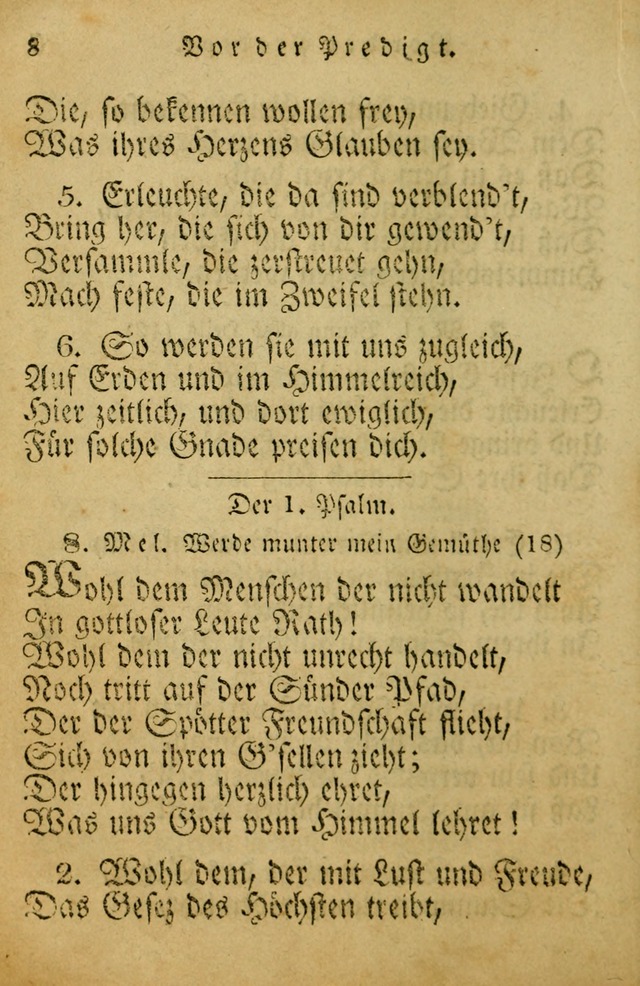 8 Vor der Predigt.
Die, so bekennen wollen frey,
Was ihres Herzens Glauben sey.
5. Erleuchte, die da sind verblend't,
Bring her, die sich von dir gewend't,
Versammle, die zerstreuet gehn,
Mach feste, die im Zweifel stehn.
6. So werden sie mit uns zugleich,
Auf Erden und im Himmelreich,
Hier zeitlich, und dort ewiglich,
Für solche Gnade preisen dich.
Der 1. Psalm.
8. Mel. Werde munter mein Gemüthe (18)
Wohl dem Menschen der nicht wandelt
In gottloser Leute Rath!
Wohl dem der nicht unrecht handelt,
Noch tritt auf der Sünder Pfad,
Der der Spötter Freundschaft flieht,
Sich von ihren G'sellen zieht;
Der hingegen herzlich ehret,
Was uns Gott vom Himmel lehret!
2. Wohl dem, der mit Lust und Freude,
Das Gesez des Höchsten treibt,